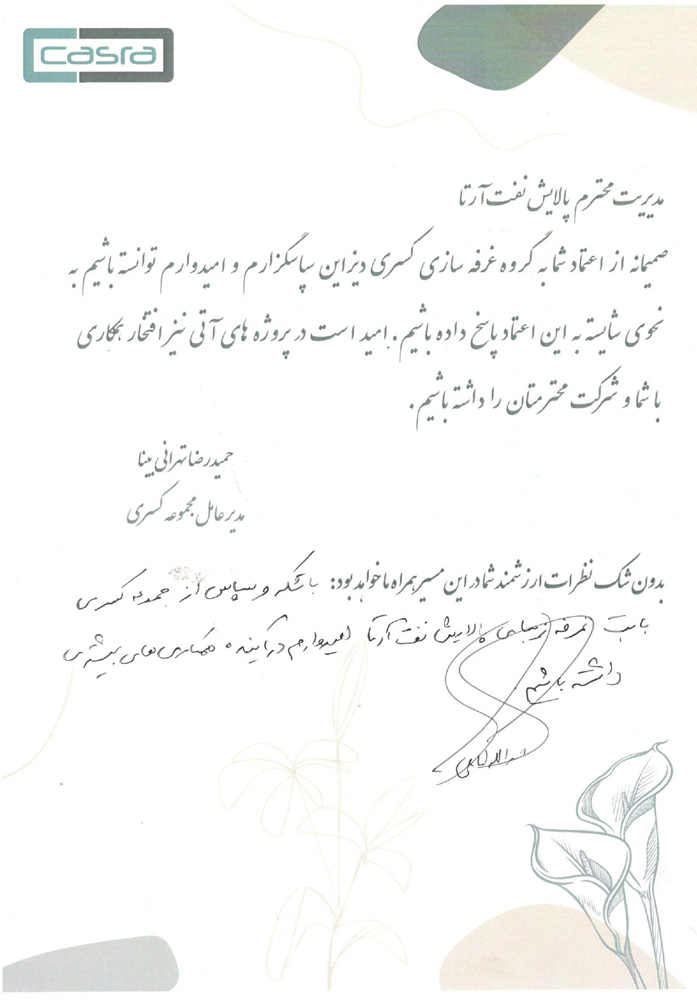 casra
مدیریت محترم پالایش نفت آرتا
صمیمانه از اعتماد شما به گروه غرفه سازی کسری دیزاین سپاسگزارم و امیدوارم توانسته باشیم به
نحوی شایسته به این اعتماد پاسخ داده باشیم. امید است در پروژه های آتی نیز افتخار همکاری
با شما و شرکت محترمتان را داشته باشیم.
حمیدرضا تهرانی بینا
مدیرعامل مجموعه کسری
بدون شک نظرات ارزشمند شما در این مسیر همراه ما خواهد بود: با تشکر و سپاس از مجموعه کسری
بابت غرفه پالایش نفت آرتا امیدوارم در آینده همکاری های بیشتری
داشته باشیم